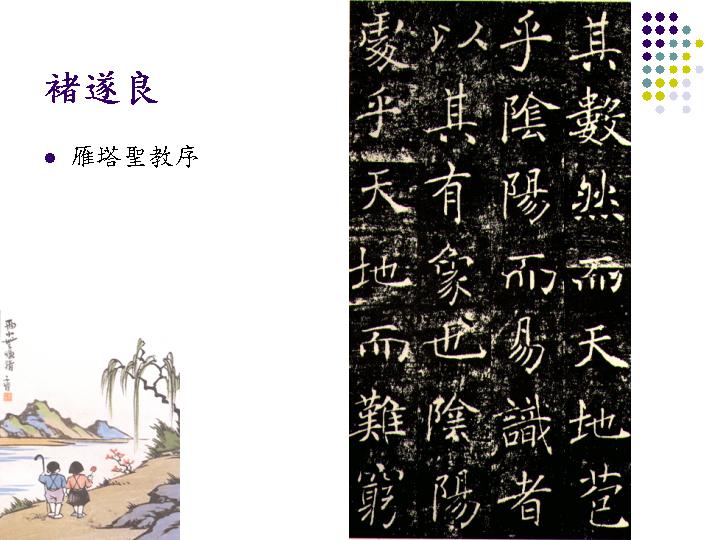 褚遂良
雁塔聖教序
其數然而天地苞
乎陰陽而易識者
以其有象也陰陽
處乎天地而難窮